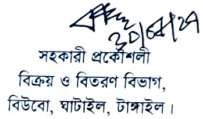 সহকারী প্রকৌশলী
বিক্রয় ও বিতরণ বিভাগ,
বিউবো, ঘাটাইল, টাঙ্গাইল।